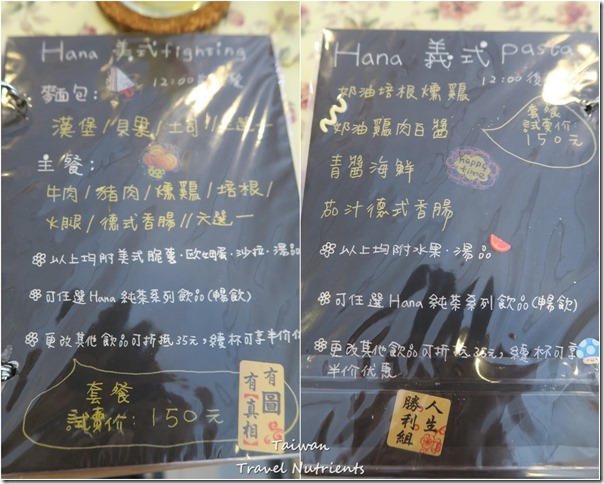 Hana 美式fighting
12:00
麵包:
漢堡/貝果/土司//三選一
主餐:
牛肉/豬肉/燻雞/培根/
火腿/德式香腸//六選一
以上均附美式脆薯.歐姆蛋.沙拉.湯品
可任選Hana純茶系列飲品(暢飲)
更改其他飲品可折抵35元,續杯可享半價
套餐
試賣價:150元
有圖
有【真相】
Hana 義式 pasta
12:00後
奶油培根燻雞
奶油雞肉白醬
青醬海鮮
茄汁德式香腸
套餐
試賣價:
150元
happy time
以上均附水果.湯品
可任選Hana純茶系列飲品(暢飲)
更改其他飲品可折抵35元,續杯可享
半價優惠
人生
勝利組
Taiwan
Travel Nutrients